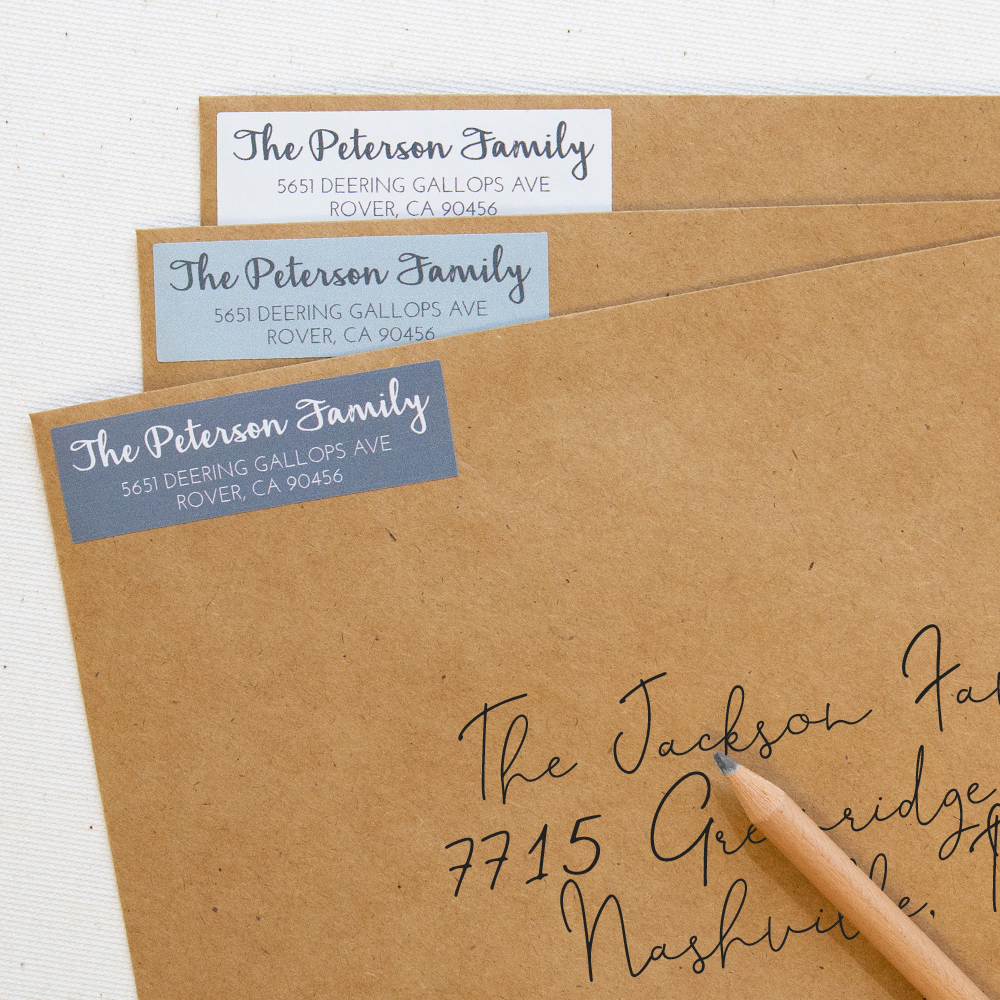 The Peterson Family
5651 DEERING GALLOPS AVE
ROVER, CA 90456
The Peterson Family
5651 DEERING GALLOPS AVE
ROVER, CA 90456
The Peterson Family
5651 DEERING GALLOPS AVE
ROVER, CA 90456
The Jackson
7715
Nashville,